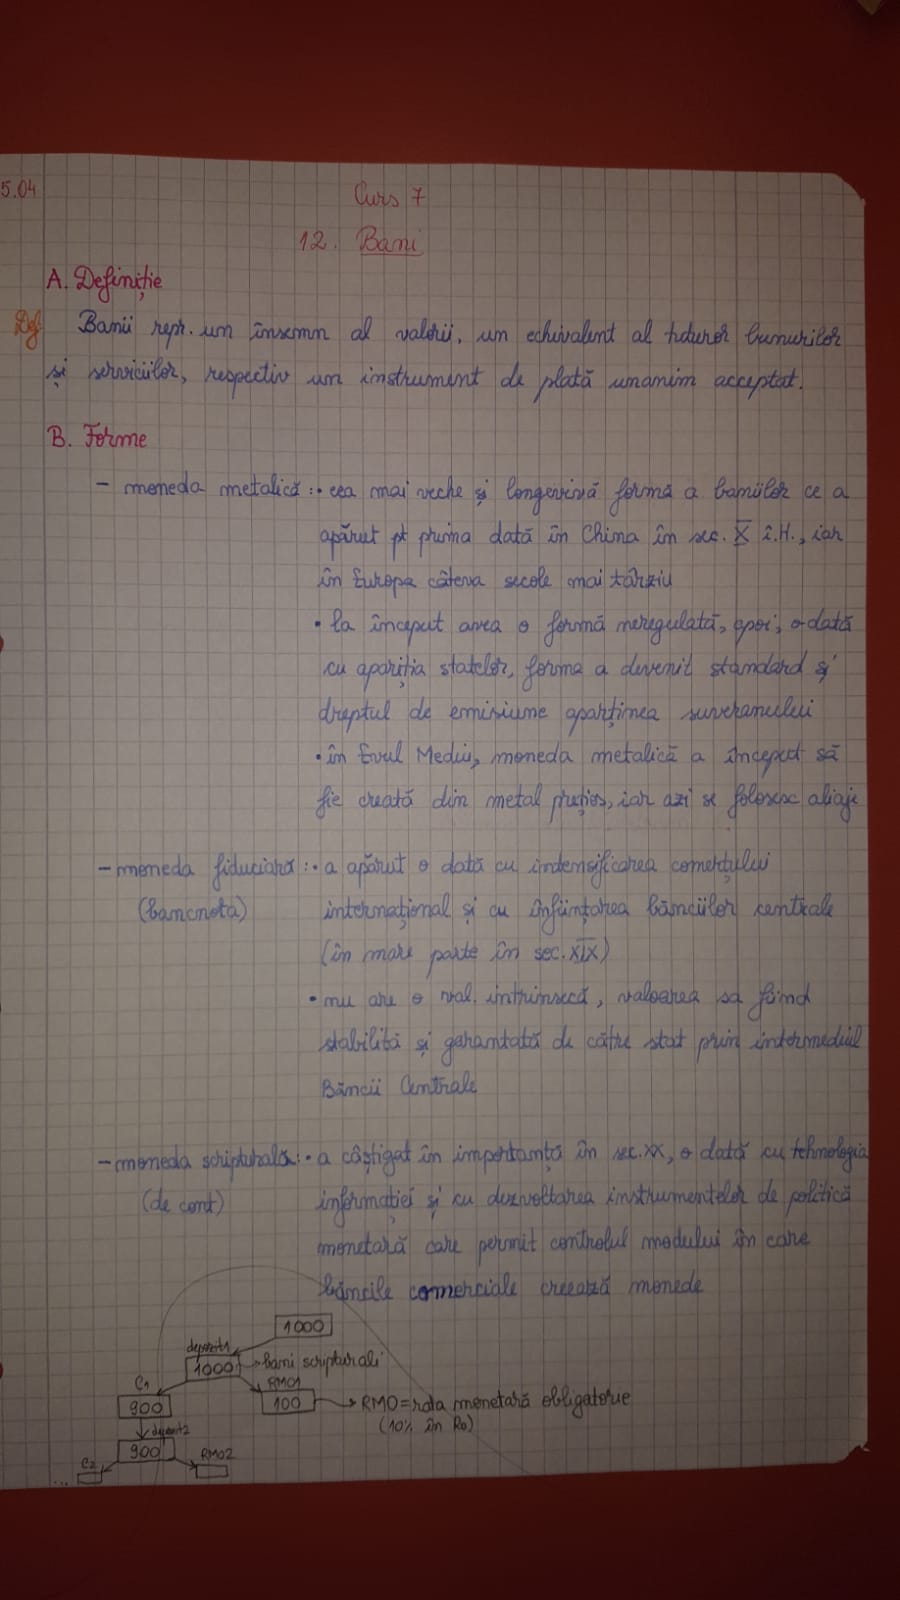 5.04
Curs 7
12. Bani
A. Definiție
Def
Banii repr. un însemn al valorii, un echivalent al tuturor bunurilor
și serviciilor, respectiv un instrument de plată unanim acceptat.
B. Forme
- moneda metalică: • cea mai veche și longevivă formă a banilor ce a
apărut pt prima dată în China în sec. X î.H., iar
în Europa câteva secole mai târziu
• la început avea o formă neregulată, apoi, o dată
cu apariția statelor, forma a devenit standard și
dreptul de emisiune aparținea suveranului
• în Evul Mediu, moneda metalică a început să
fie creată din metal prețios, iar azi se folosesc aliaje
- moneda fiduciară: • a apărut o dată cu intensificarea comerțului
(bancnota) internațional și cu înființarea băncilor centrale
(în mare parte în sec. XIX)
• nu are o val. intrinsecă, valoarea sa fiind
stabilită și garantată de către stat prin intermediul
Băncii Centrale
- moneda scripturală: • a câștigat în importanță în sec. XX, o dată cu tehnologia
(de cont) informației și cu dezvoltarea instrumentelor de politică
monetară care permit controlul modului în care
băncile comerciale creează monede
1000
depozit1
1000 → bani scripturali
C1
900
RMO1
100 → RMO = rata monetară obligatorie
(10% în Ro)
depozit2
900
C2
RMO2
...